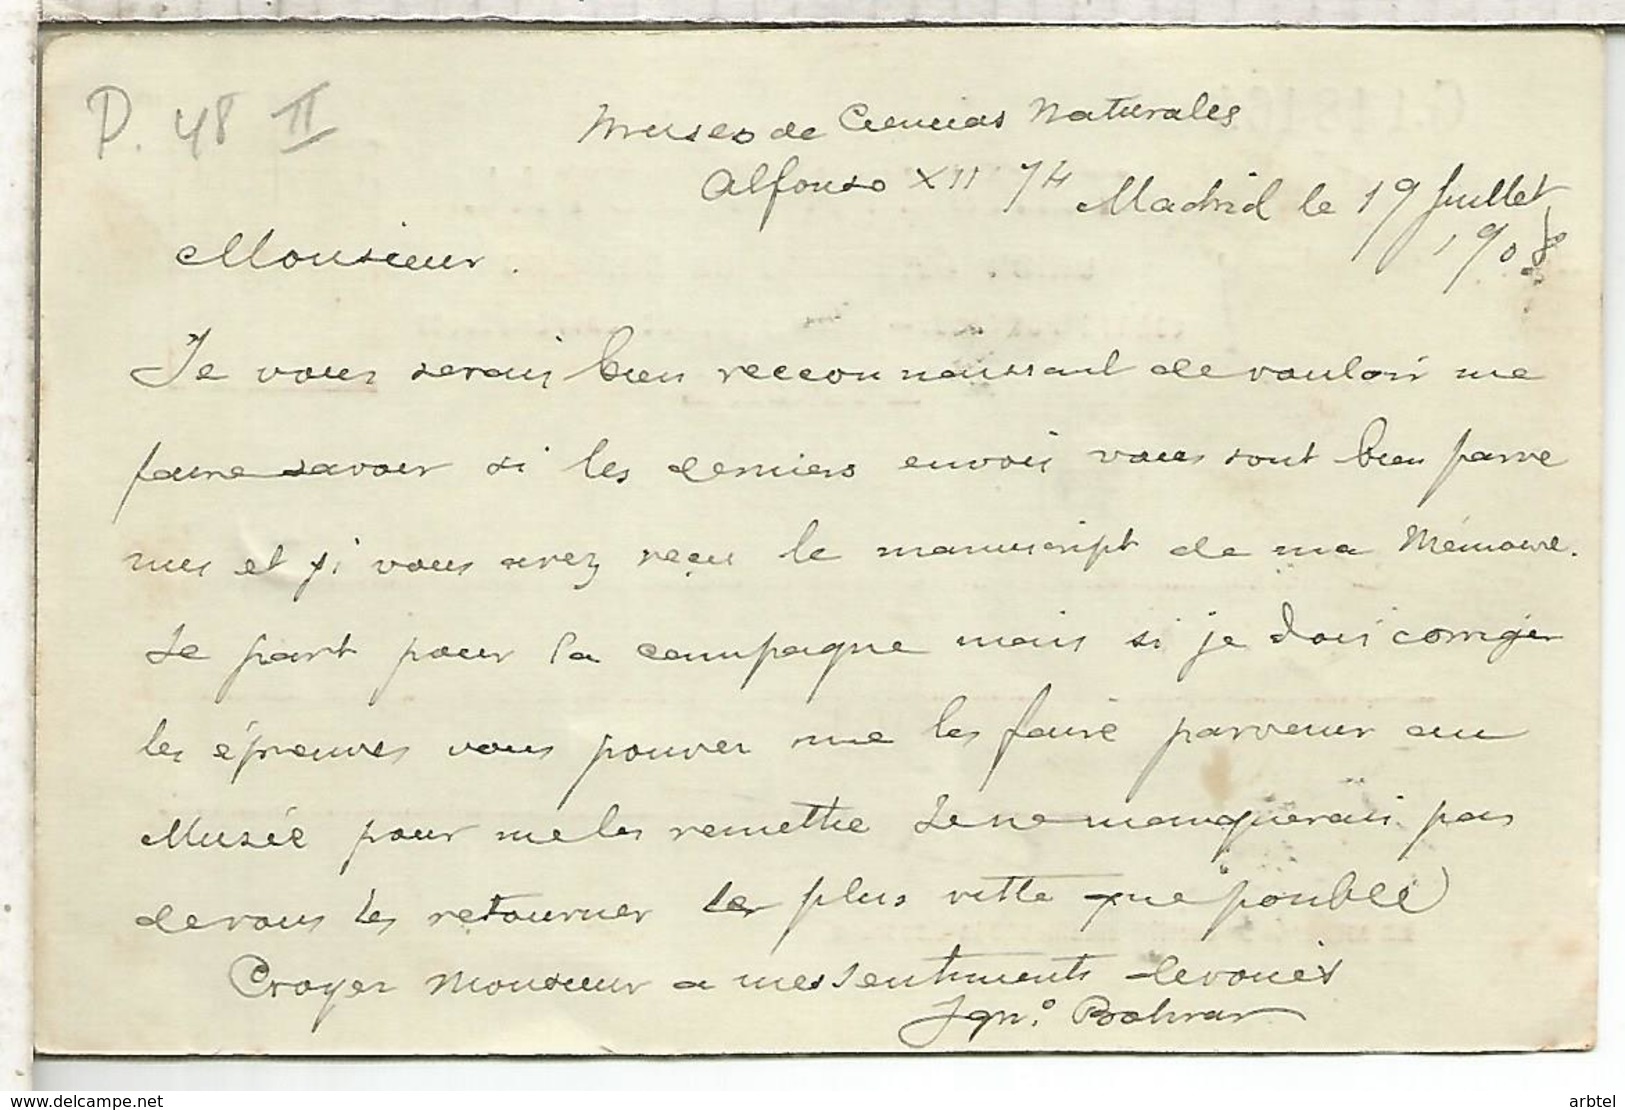 P. 48 II
Museo de Ciencias Naturales
Alfonso XII 74 Madrid le 19 Juillet
1908
Monsieur.
Je vous serais bien reccounnaissant de vouloir me
faire savoir si les derniers envois vous sont bien parve
nus et si vous avez reçu le manuscript de ma Mémoire.
Je part pour la campagne mais si je dois corriger
les épreuves vous pouvez me les faire parvenir au
Musée pour me les remettre Je ne manquerais pas
de vous les retourner les plus vitte que posible
Croyez Monsieur a mes sentiments devoués
Ign.º Bolivar
www.delcampe.net
arbtel